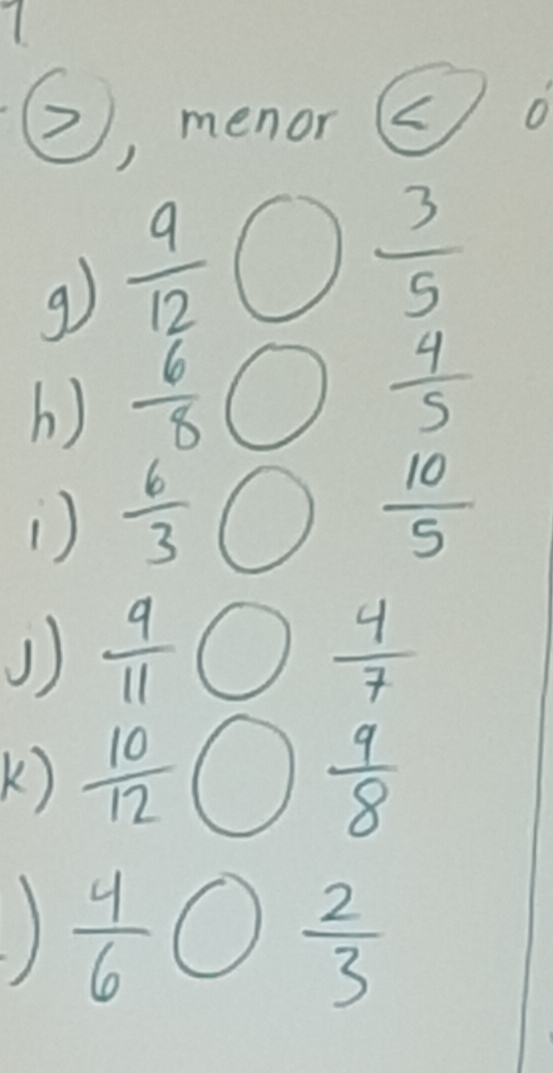 >, menor < ó
g) 9/12 3/5
h) 6/8 4/5
i) 6/3 10/5
J) 9/11 4/7
K) 10/12 9/8
) 4/6 2/3